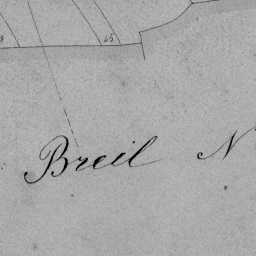 Breil N